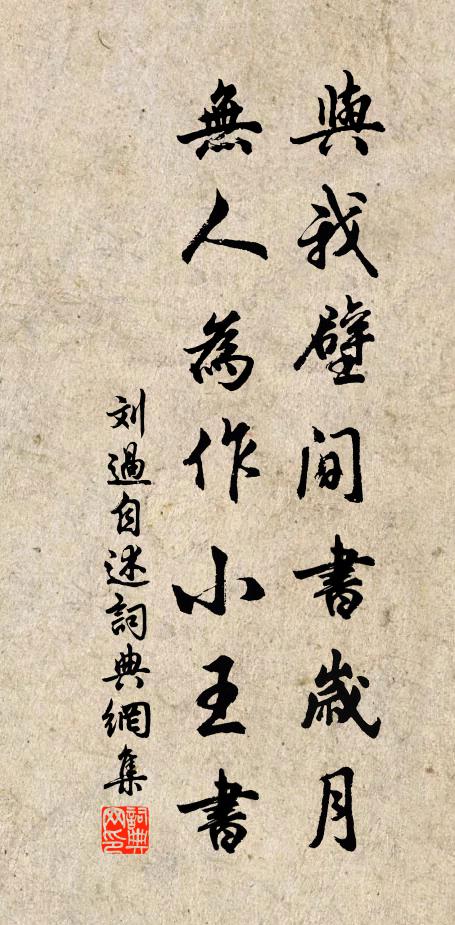 與我壁間書歲月
無人為作小王書
刘過自述詞典網集
詞典网印